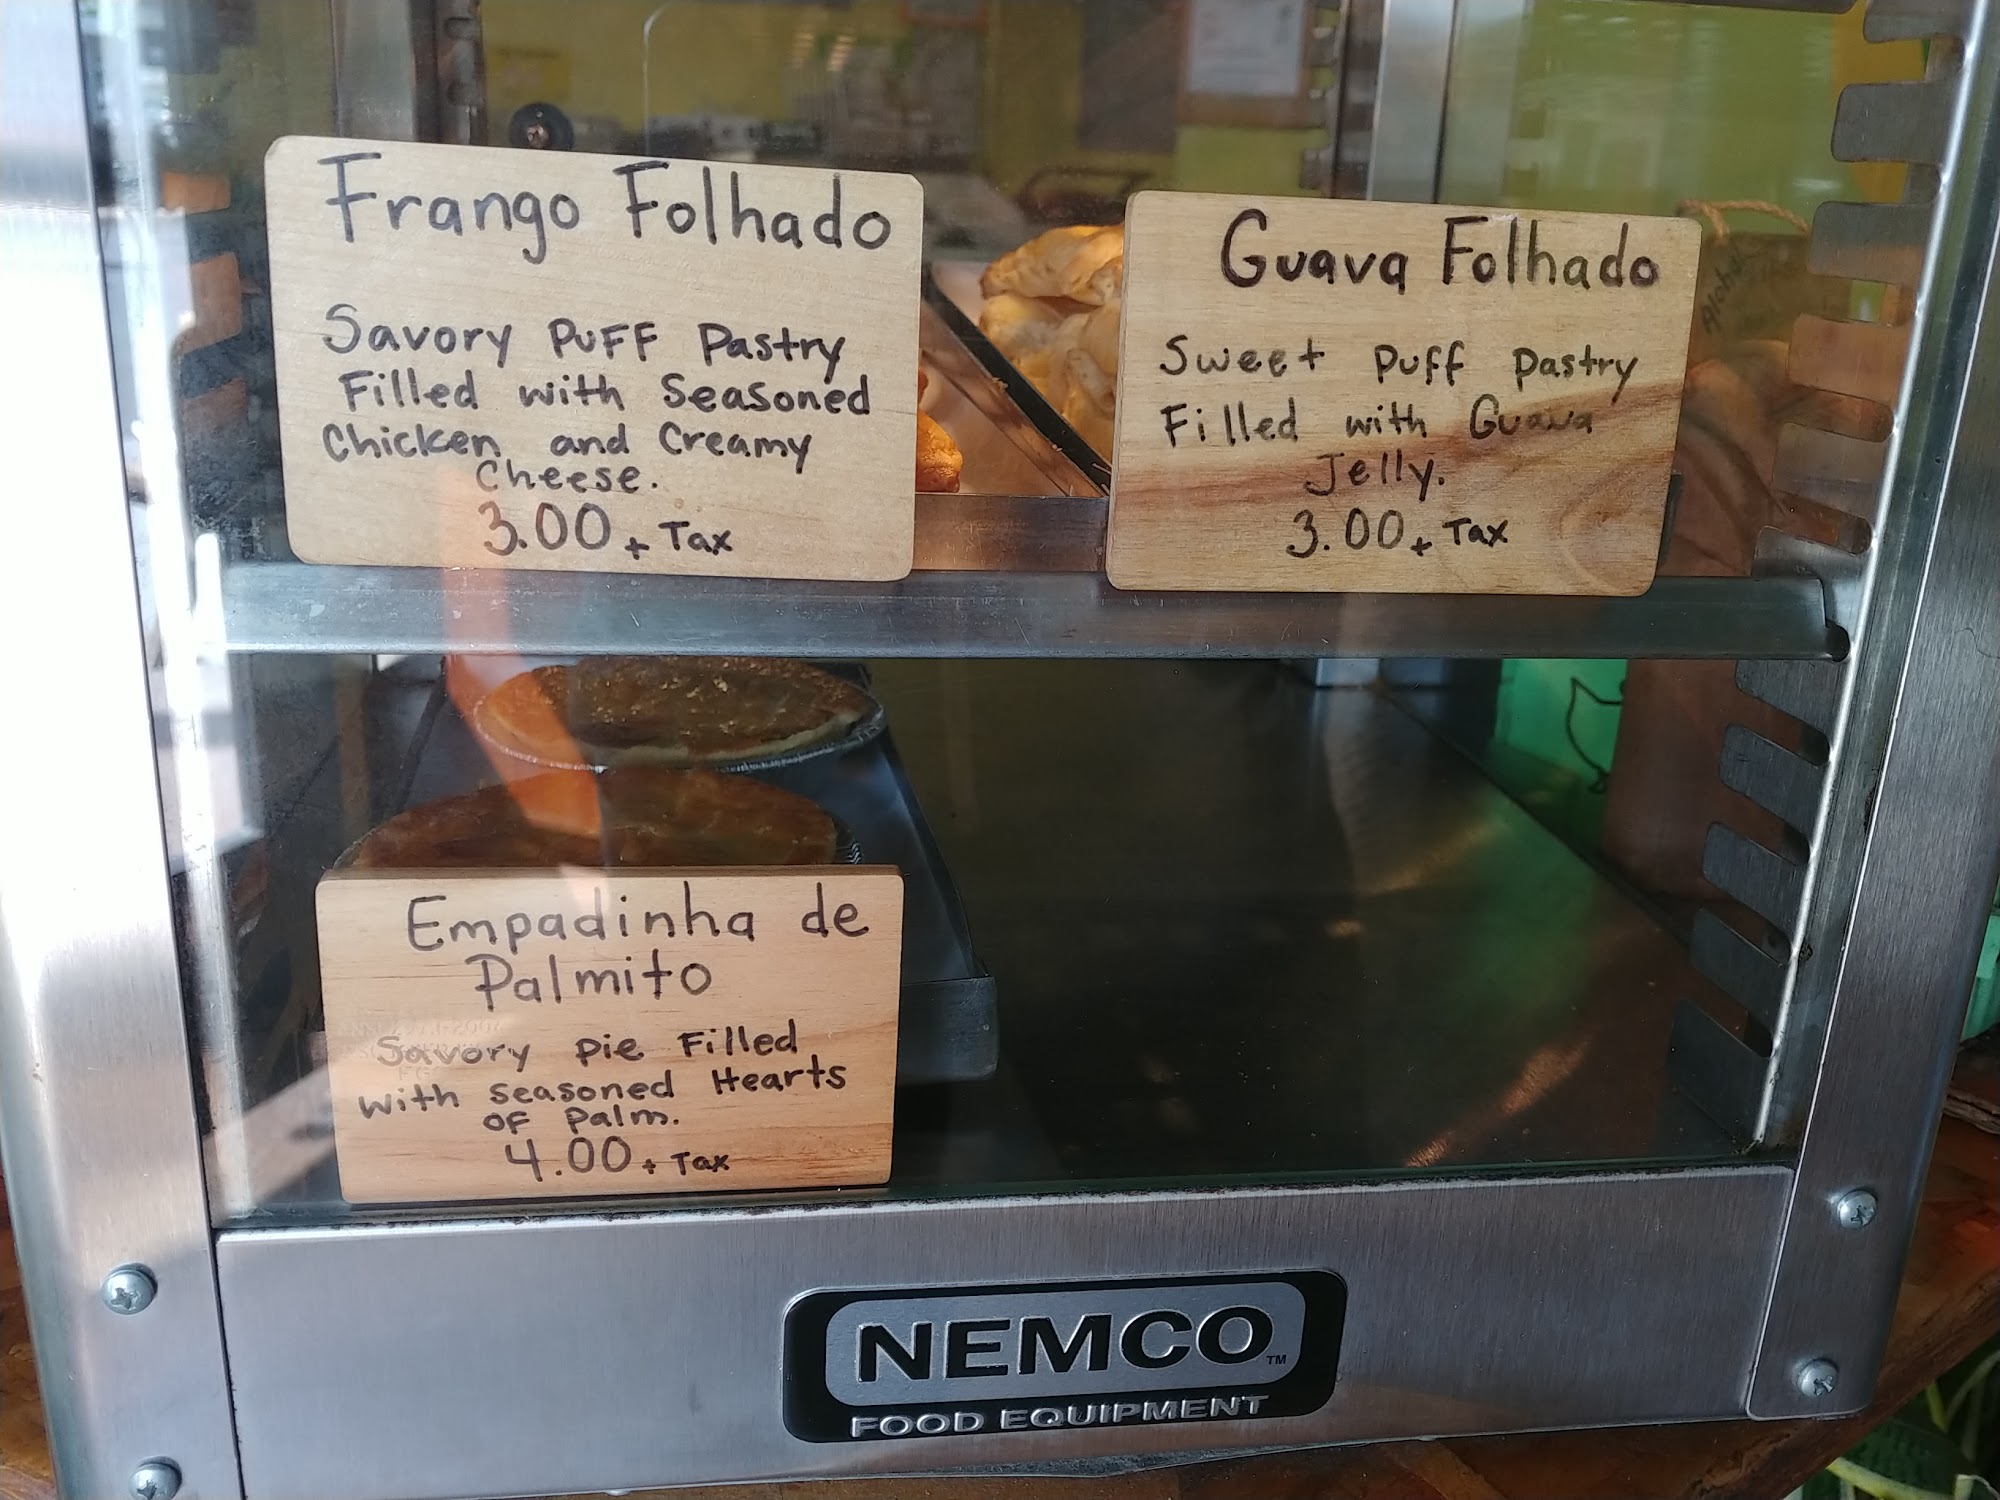 Frango Folhado
Savory Puff Pastry
Filled with Seasoned
Chicken and Creamy
Cheese.
3.00 + Tax
Guava Folhado
Sweet Puff Pastry
Filled with Guava
Jelly.
3.00 + Tax
Empadinha de
Palmito
Savory pie Filled
with seasoned Hearts
of palm.
4.00 + Tax
NEMCO TM
FOOD EQUIPMENT